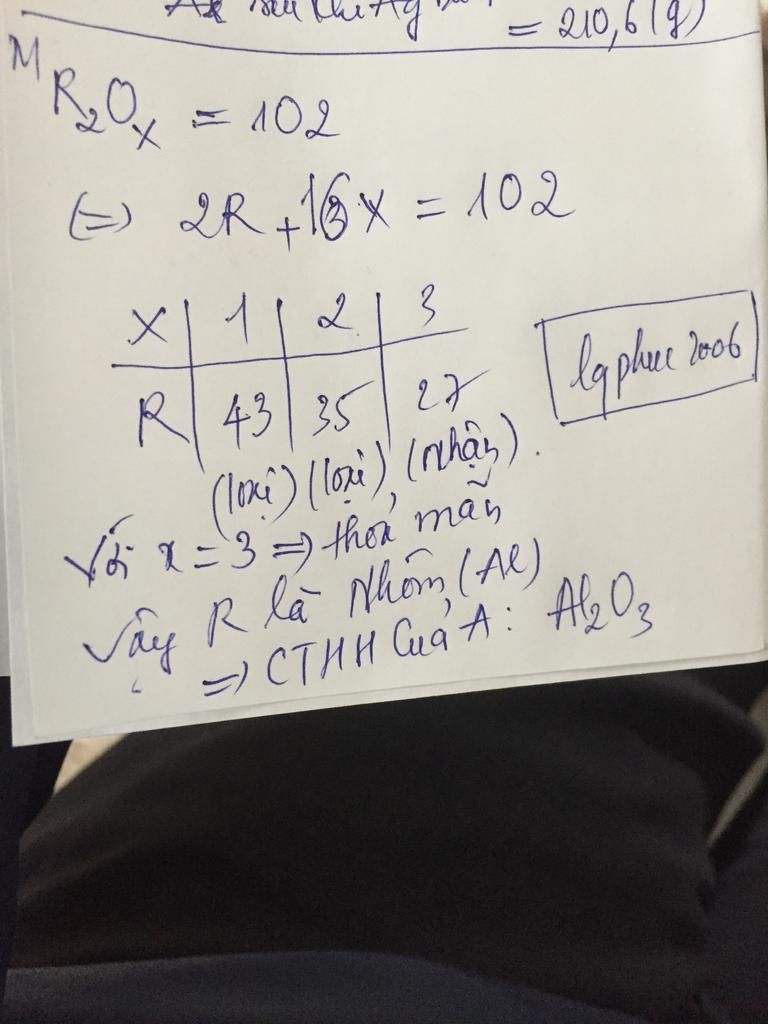 = 210,6 (g)
M R₂Oₓ = 102
(=) 2R + 16x = 102
x | 1 | 2 | 3
R | 43 | 35 | 27
(loại) (loại) (nhận).
lqphuc 2006
Với x = 3 => thoả mãn
Vậy R là Nhôm (Al)
=> CTHH Của A: Al₂O₃